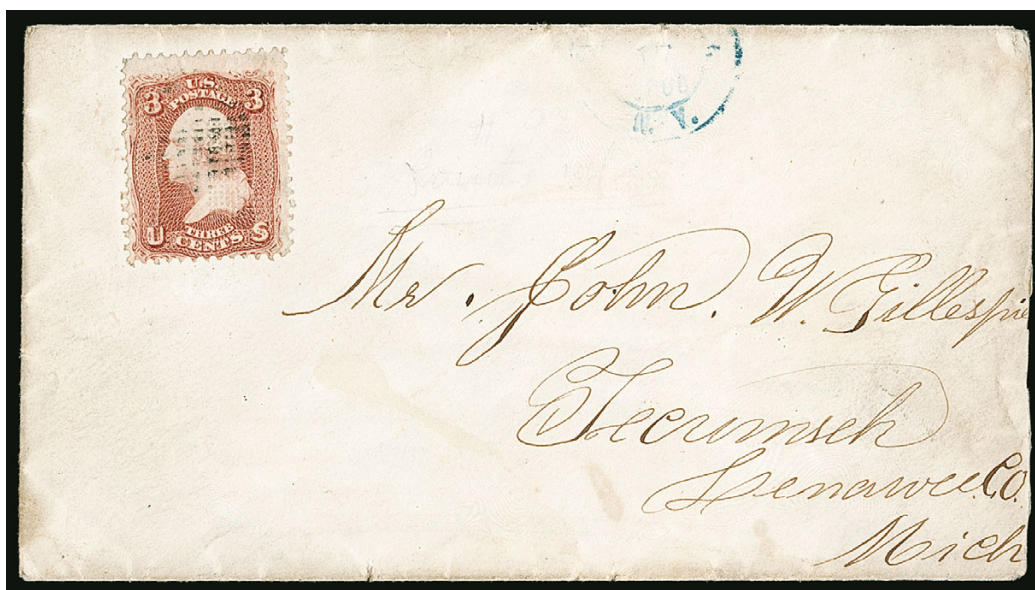 U.S.
POSTAGE
3 3
THREE
CENTS
U S
N.Y.
Mr. John. W. Gillespie
Tecumseh
Lenawee. Co.
Mich